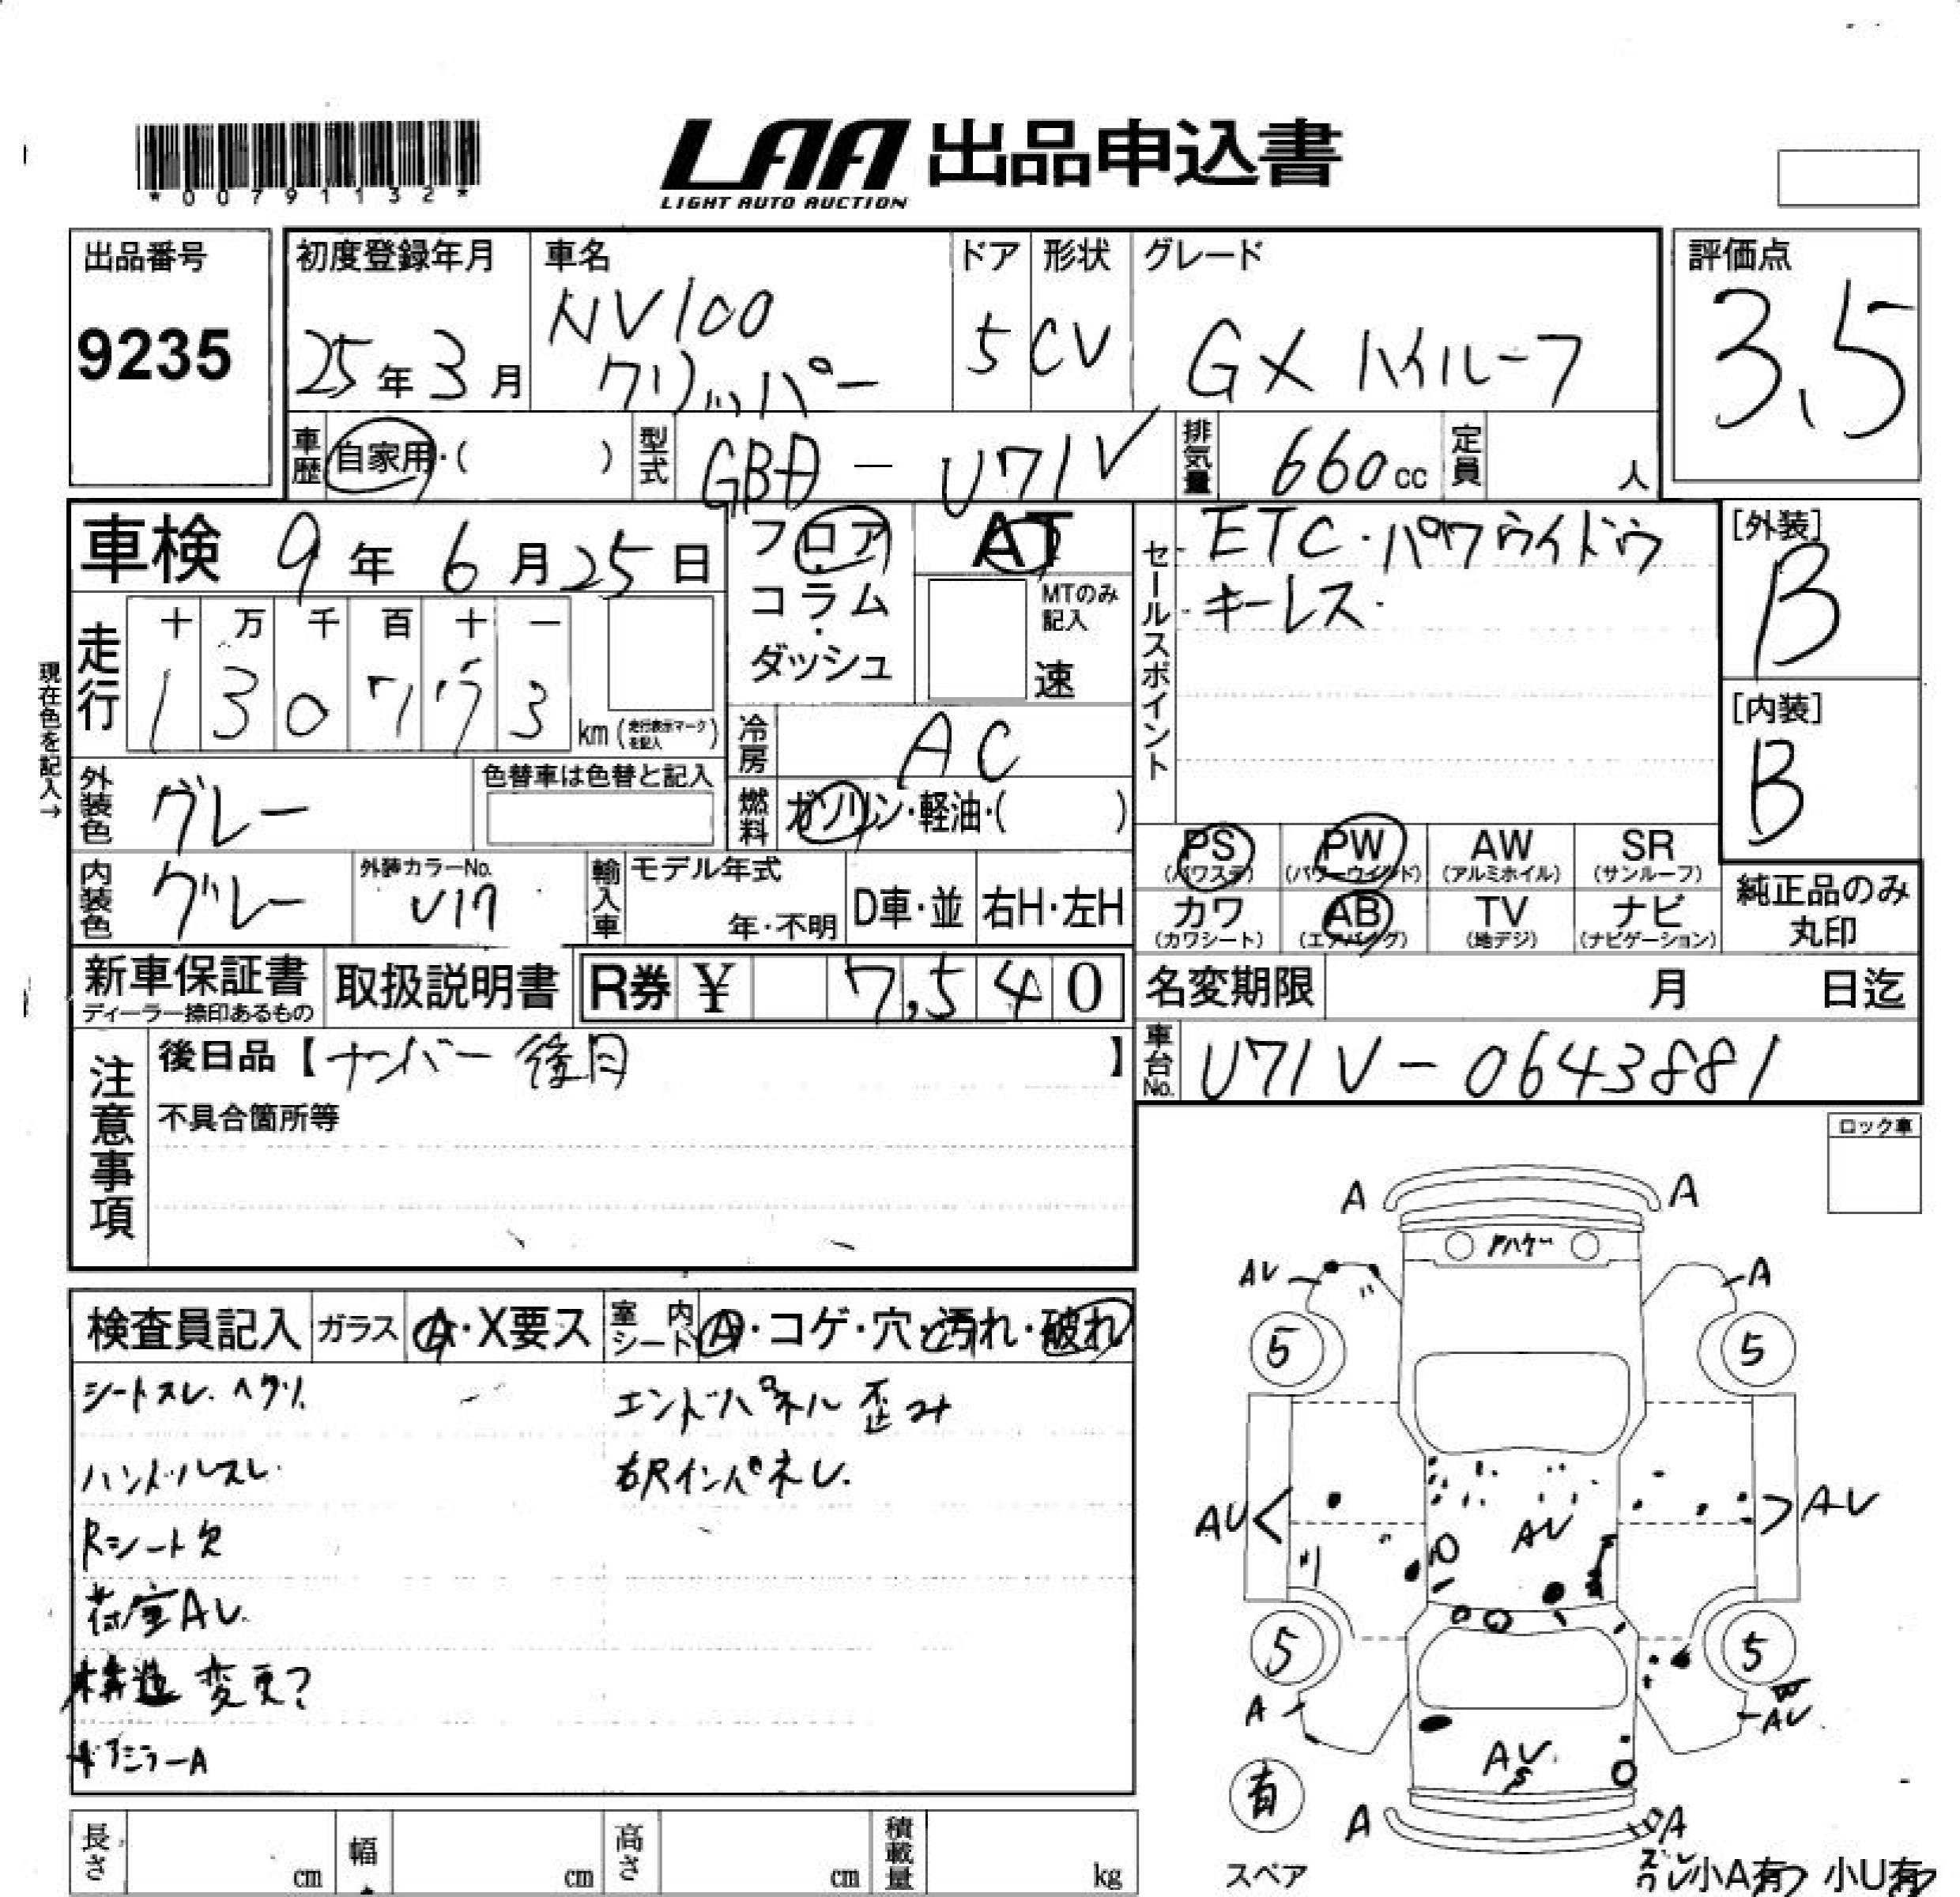 *00791132*
LAA 出品申込書
LIGHT AUTO AUCTION
出品番号
9235
初度登録年月
25年3月
車名
NV100
クリッパー
ドア
5
形状
CV
グレード
GX ハイルーフ
評価点
3.5
車歴
自家用・( )
型式
GBD-U71V
排気量
660cc
定員
人
車検 9年6月25日
フロア
コラム
・
ダッシュ
AT
MTのみ
記入
速
セールスポイント
ETC・パワウイドウ
キーレス・
[外装]
B
[内装]
B
現在色を記入→
走行
十 万 千 百 十 一
1 3 0 7 7 3
km (走行表示マークを記入)
冷房
AC
燃料
ガソリン・軽油・( )
外装色
グレー
色替車は色替と記入
内装色
グレー
外装カラーNo.
V17
輸入車
モデル年式
年・不明
D車・並
右H・左H
PS
(パワステ)
PW
(パワーウインド)
AW
(アルミホイル)
SR
(サンルーフ)
カワ
(カワシート)
AB
(エアバッグ)
TV
(地デジ)
ナビ
(ナビゲーション)
純正品のみ
丸印
新車保証書
ディーラー捺印あるもの
取扱説明書
R券 ¥ 7,540
名変期限 月 日迄
注意事項
後日品【ナンバー 後日 】
不具合箇所等
車台No.
U71V-0643881
ロック車
検査員記入
ガラス
A・X要ス
室内シート
A・コゲ・穴・汚れ・破れ
シートスレ. ヘタリ.
ハンドルスレ.
Rシート欠
荷室AU.
構造変更?
ドアミラーA
エンドパネル 歪み
右Rインパネレ.
A
A
AU
A
5
5
AU
AU
AU
5
5
A
AU
AU
S
有
スペア
A
A
ズレ
小A有 小U有
長さ
cm
幅
cm
高さ
cm
積載量
kg